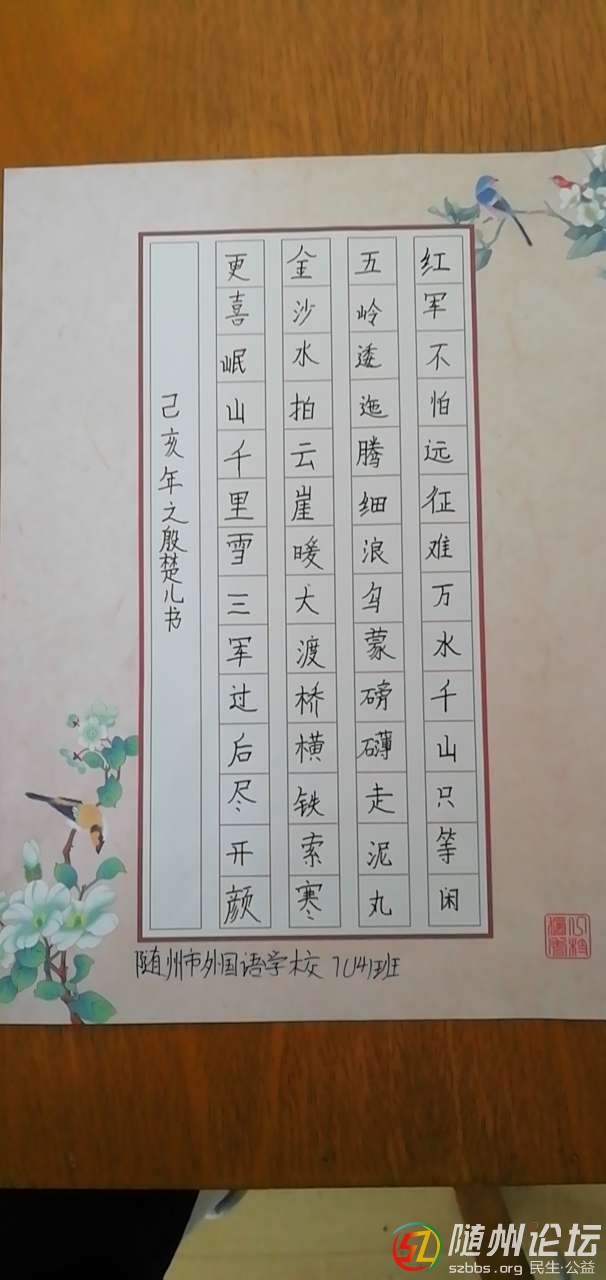 红军不怕远征难万水千山只等闲
五岭逶迤腾细浪乌蒙磅礴走泥丸
金沙水拍云崖暖大渡桥横铁索寒
更喜岷山千里雪三军过后尽开颜
己亥年之殷楚儿书
随州市外国语学校7(4)班
随州论坛
szbbs.org 民生·公益